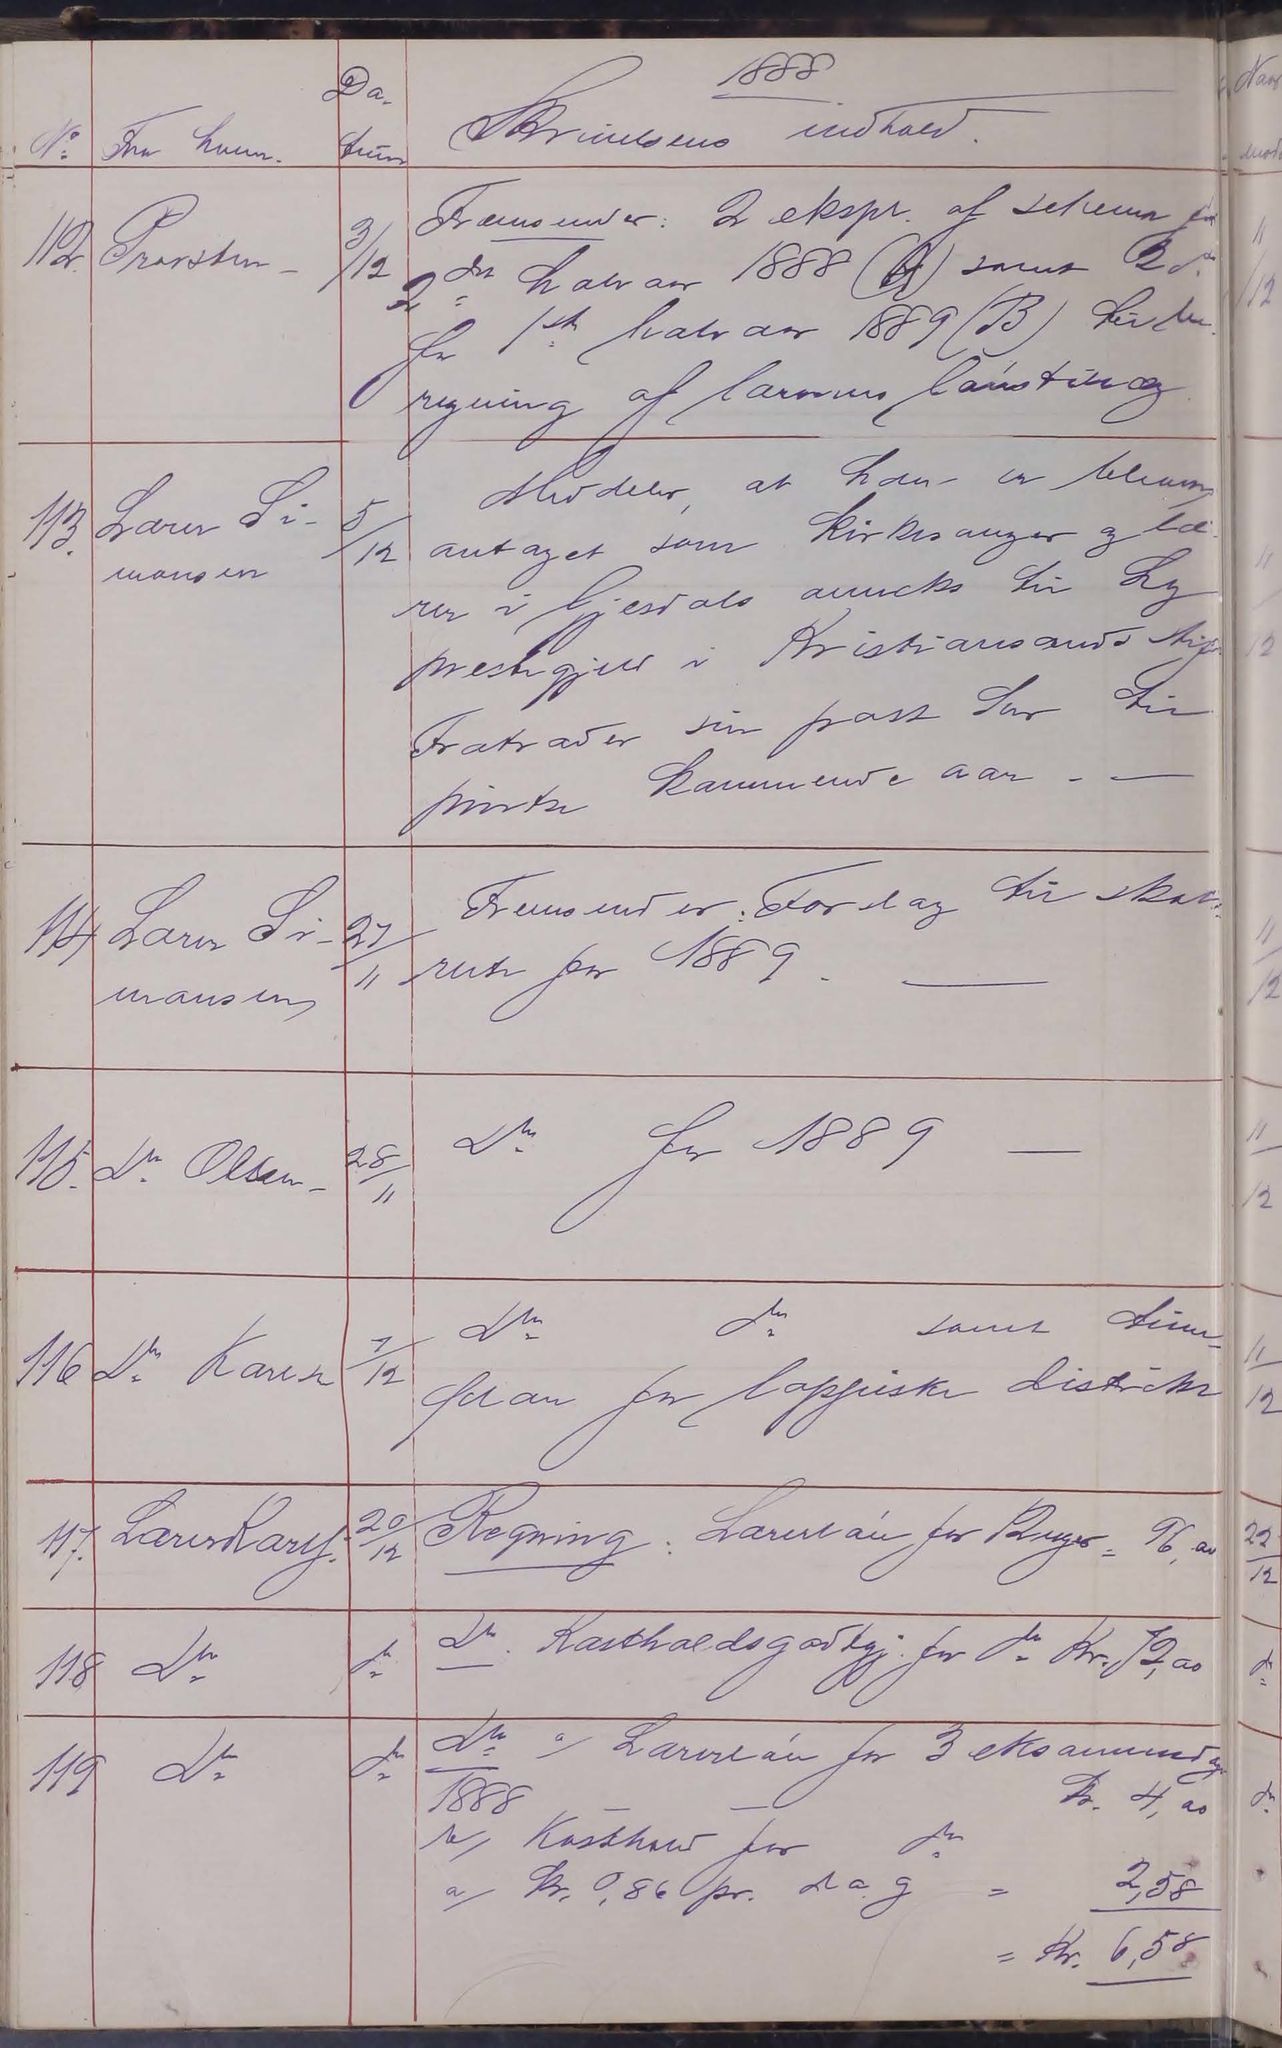 1888
Da-
Navn
No. Fra hvem. tum Skrivelsens indhold.
112. Provsten - 3/12 Fremsender: 2 ekspl. af schema for
2det halvaar 1888 (A) samt 2 do
for 1ste halvaar 1889 (B) til be-
regning af lærernes lønstillæg
113. Lærer Si- 5/12 Meddeler, at han er bleven
monsen antaget som kirkesanger og læ-
rer i Gjesdals anneks til Ly
prestegjeld i Kristiansands stift.
Fratræder sin post her til
pintse kommende aar. -
114 Lærer Si- 27/11 Fremsender: Forslag til skole-
monsen rute for 1889.
115. Do Olsen - 28/11 Do for 1889 -
116 Do Karlsen 7/12 Do do samt time-
plan for lappiske distrikter
117. Lærer Karls. 20/12 Regning: Lærerløn for 12 uger = 96,00 22/12
118 Do do Do. Kostholdsgodtgj. for do Kr. 72,00 do
119 Do do Do a/ Lærerløn for 3 eksamensdage
1888 - - Kr. 4,00 do
b/ Kosthold for do
a/ Kr. 0,86 pr. dag = 2,58
= Kr. 6,58